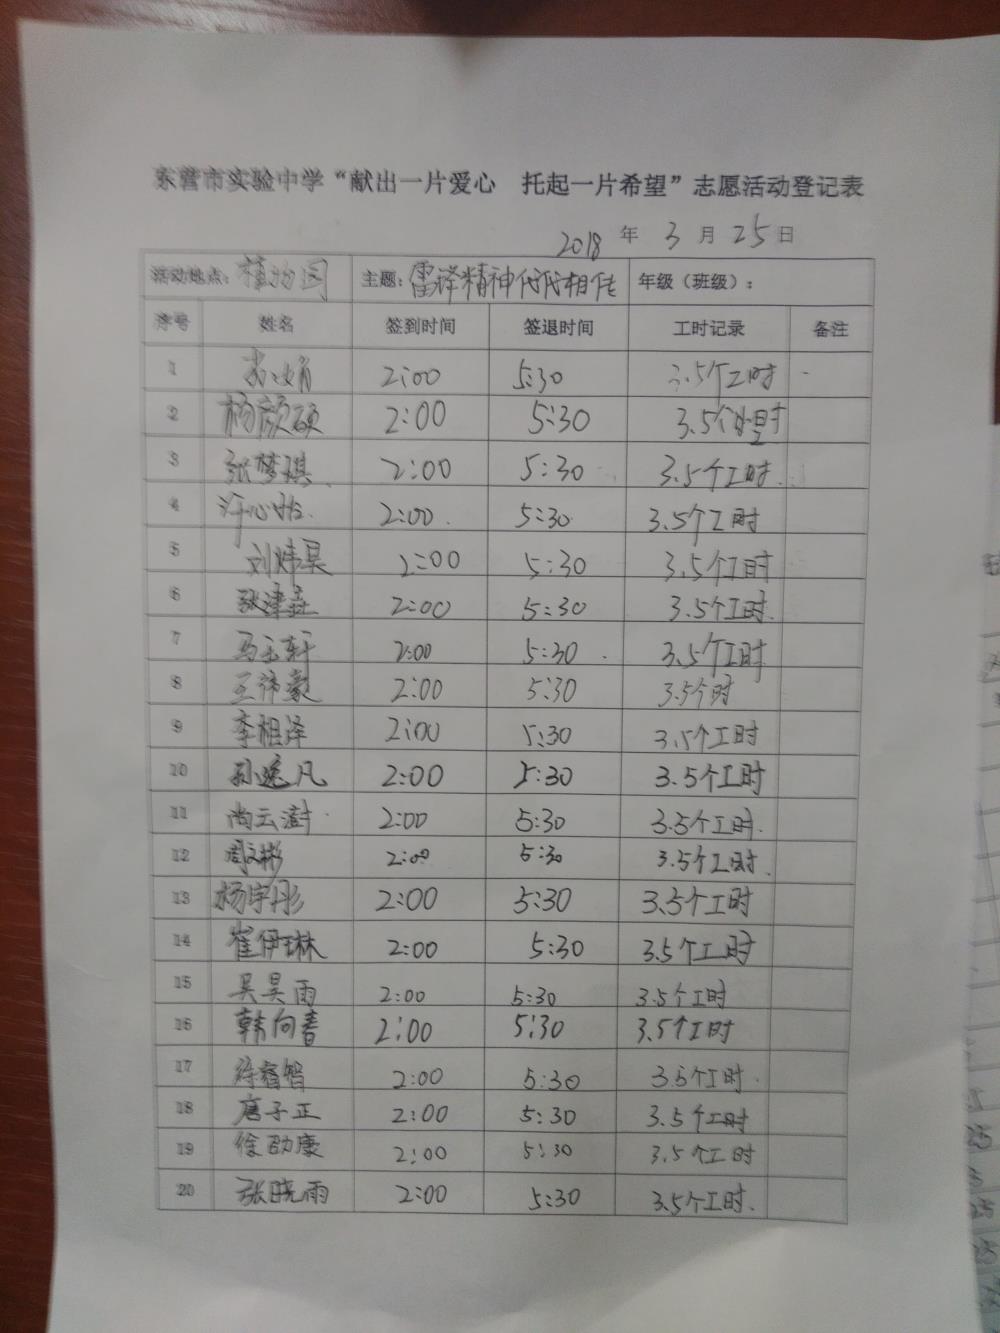 东营市实验中学“献出一片爱心 托起一片希望”志愿活动登记表
2018 年 3 月 25 日
活动地点：植物园 主题：雷锋精神代代相传 年级（班级）：
序号 姓名 签到时间 签退时间 工时记录 备注
1 2:00 5:30 3.5个工时
2 杨颜硕 2:00 5:30 3.5个
3 张梦琪 2:00 5:30 3.5个工时
4 许心怡 2:00 5:30 3.5个工时
5 刘炜昊 2:00 5:30 3.5个工时
6 张津垚 2:00 5:30 3.5个工时
7 马玉轩 2:00 5:30 3.5个工时
8 王沛豪 2:00 5:30 3.5个时
9 李相泽 2:00 5:30 3.5个工时
10 孙逸凡 2:00 5:30 3.5个工时
11 尚云澍 2:00 5:30 3.5个工时
12 周文彬 2:00 5:30 3.5个工时
13 杨宇彤 2:00 5:30 3.5个工时
14 崔伊琳 2:00 5:30 3.5个工时
15 吴昊雨 2:00 5:30 3.5个工时
16 韩向春 2:00 5:30 3.5个工时
17 2:00 5:30 3.5个工时
18 唐子正 2:00 5:30 3.5个工时
19 徐劭康 2:00 5:30 3.5个工时
20 张晓雨 2:00 5:30 3.5个工时